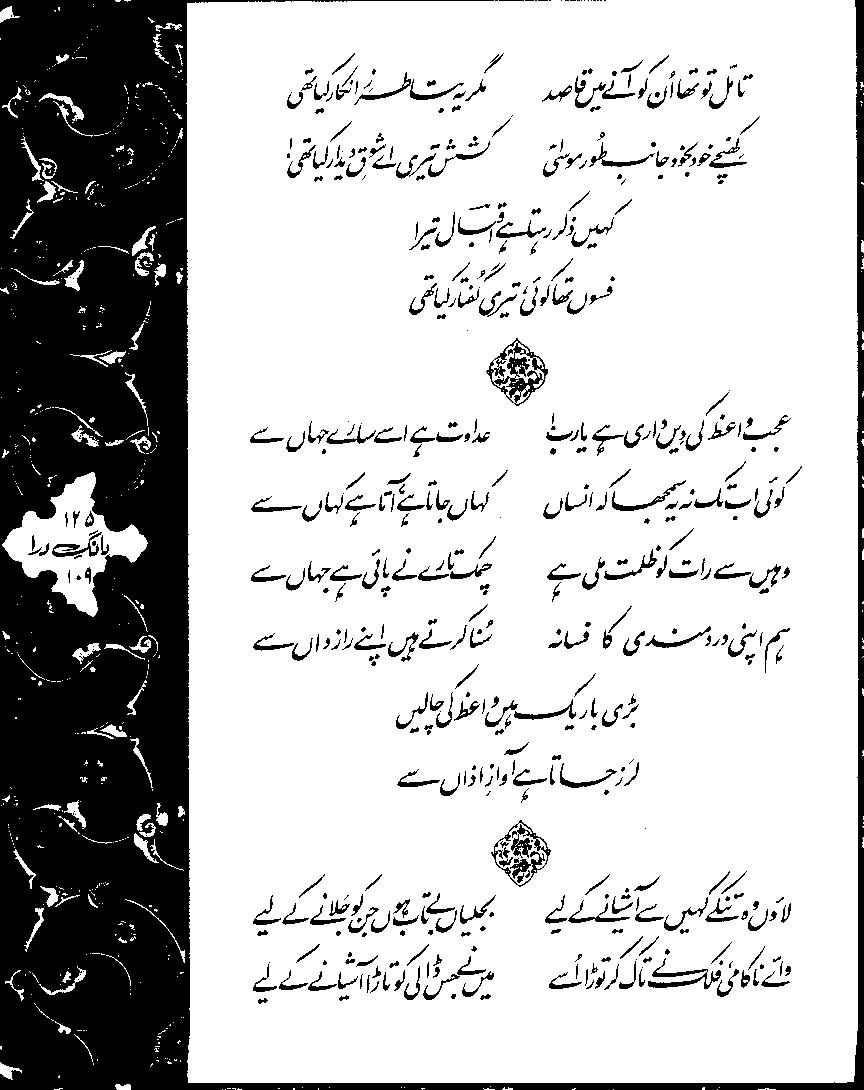 تامّل تو تھا اُن کو آنے میں قاصد مگر یہ بتا طرزِ انکار کیا تھی
کھِنچے خود بخود جانبِ طُور موسٰیؑ کشش تیری اے شوقِ دیدار کیا تھی!
کہیں ذکر رہتا ہے اقبالؔ تیرا
فسوں تھا کوئی، تیری گُفتار کیا تھی
عجب واعظ کی دِیں داری ہے یا رب! عداوت ہے اسے سارے جہاں سے
کوئی اب تک نہ یہ سمجھا کہ انساں کہاں جاتا ہے، آتا ہے کہاں سے
وہیں سے رات کو ظلمت ملی ہے چمک تارے نے پائی ہے جہاں سے
ہم اپنی دردمندی کا فسانہ سُنا کرتے ہیں اپنے رازداں سے
بڑی باریک ہیں واعظ کی چالیں
لرز جاتا ہے آوازِ اذاں سے
لاؤں وہ تنکے کہیں سے آشیانے کے لیے بجلیاں بے تاب ہوں جن کو جلانے کے لیے
وائے ناکامی، فلک نے تاک کر توڑا اُسے میں نے جس ڈالی کو تاڑا آشیانے کے لیے
۱۲۵
بانگِ درا
۱۰۹